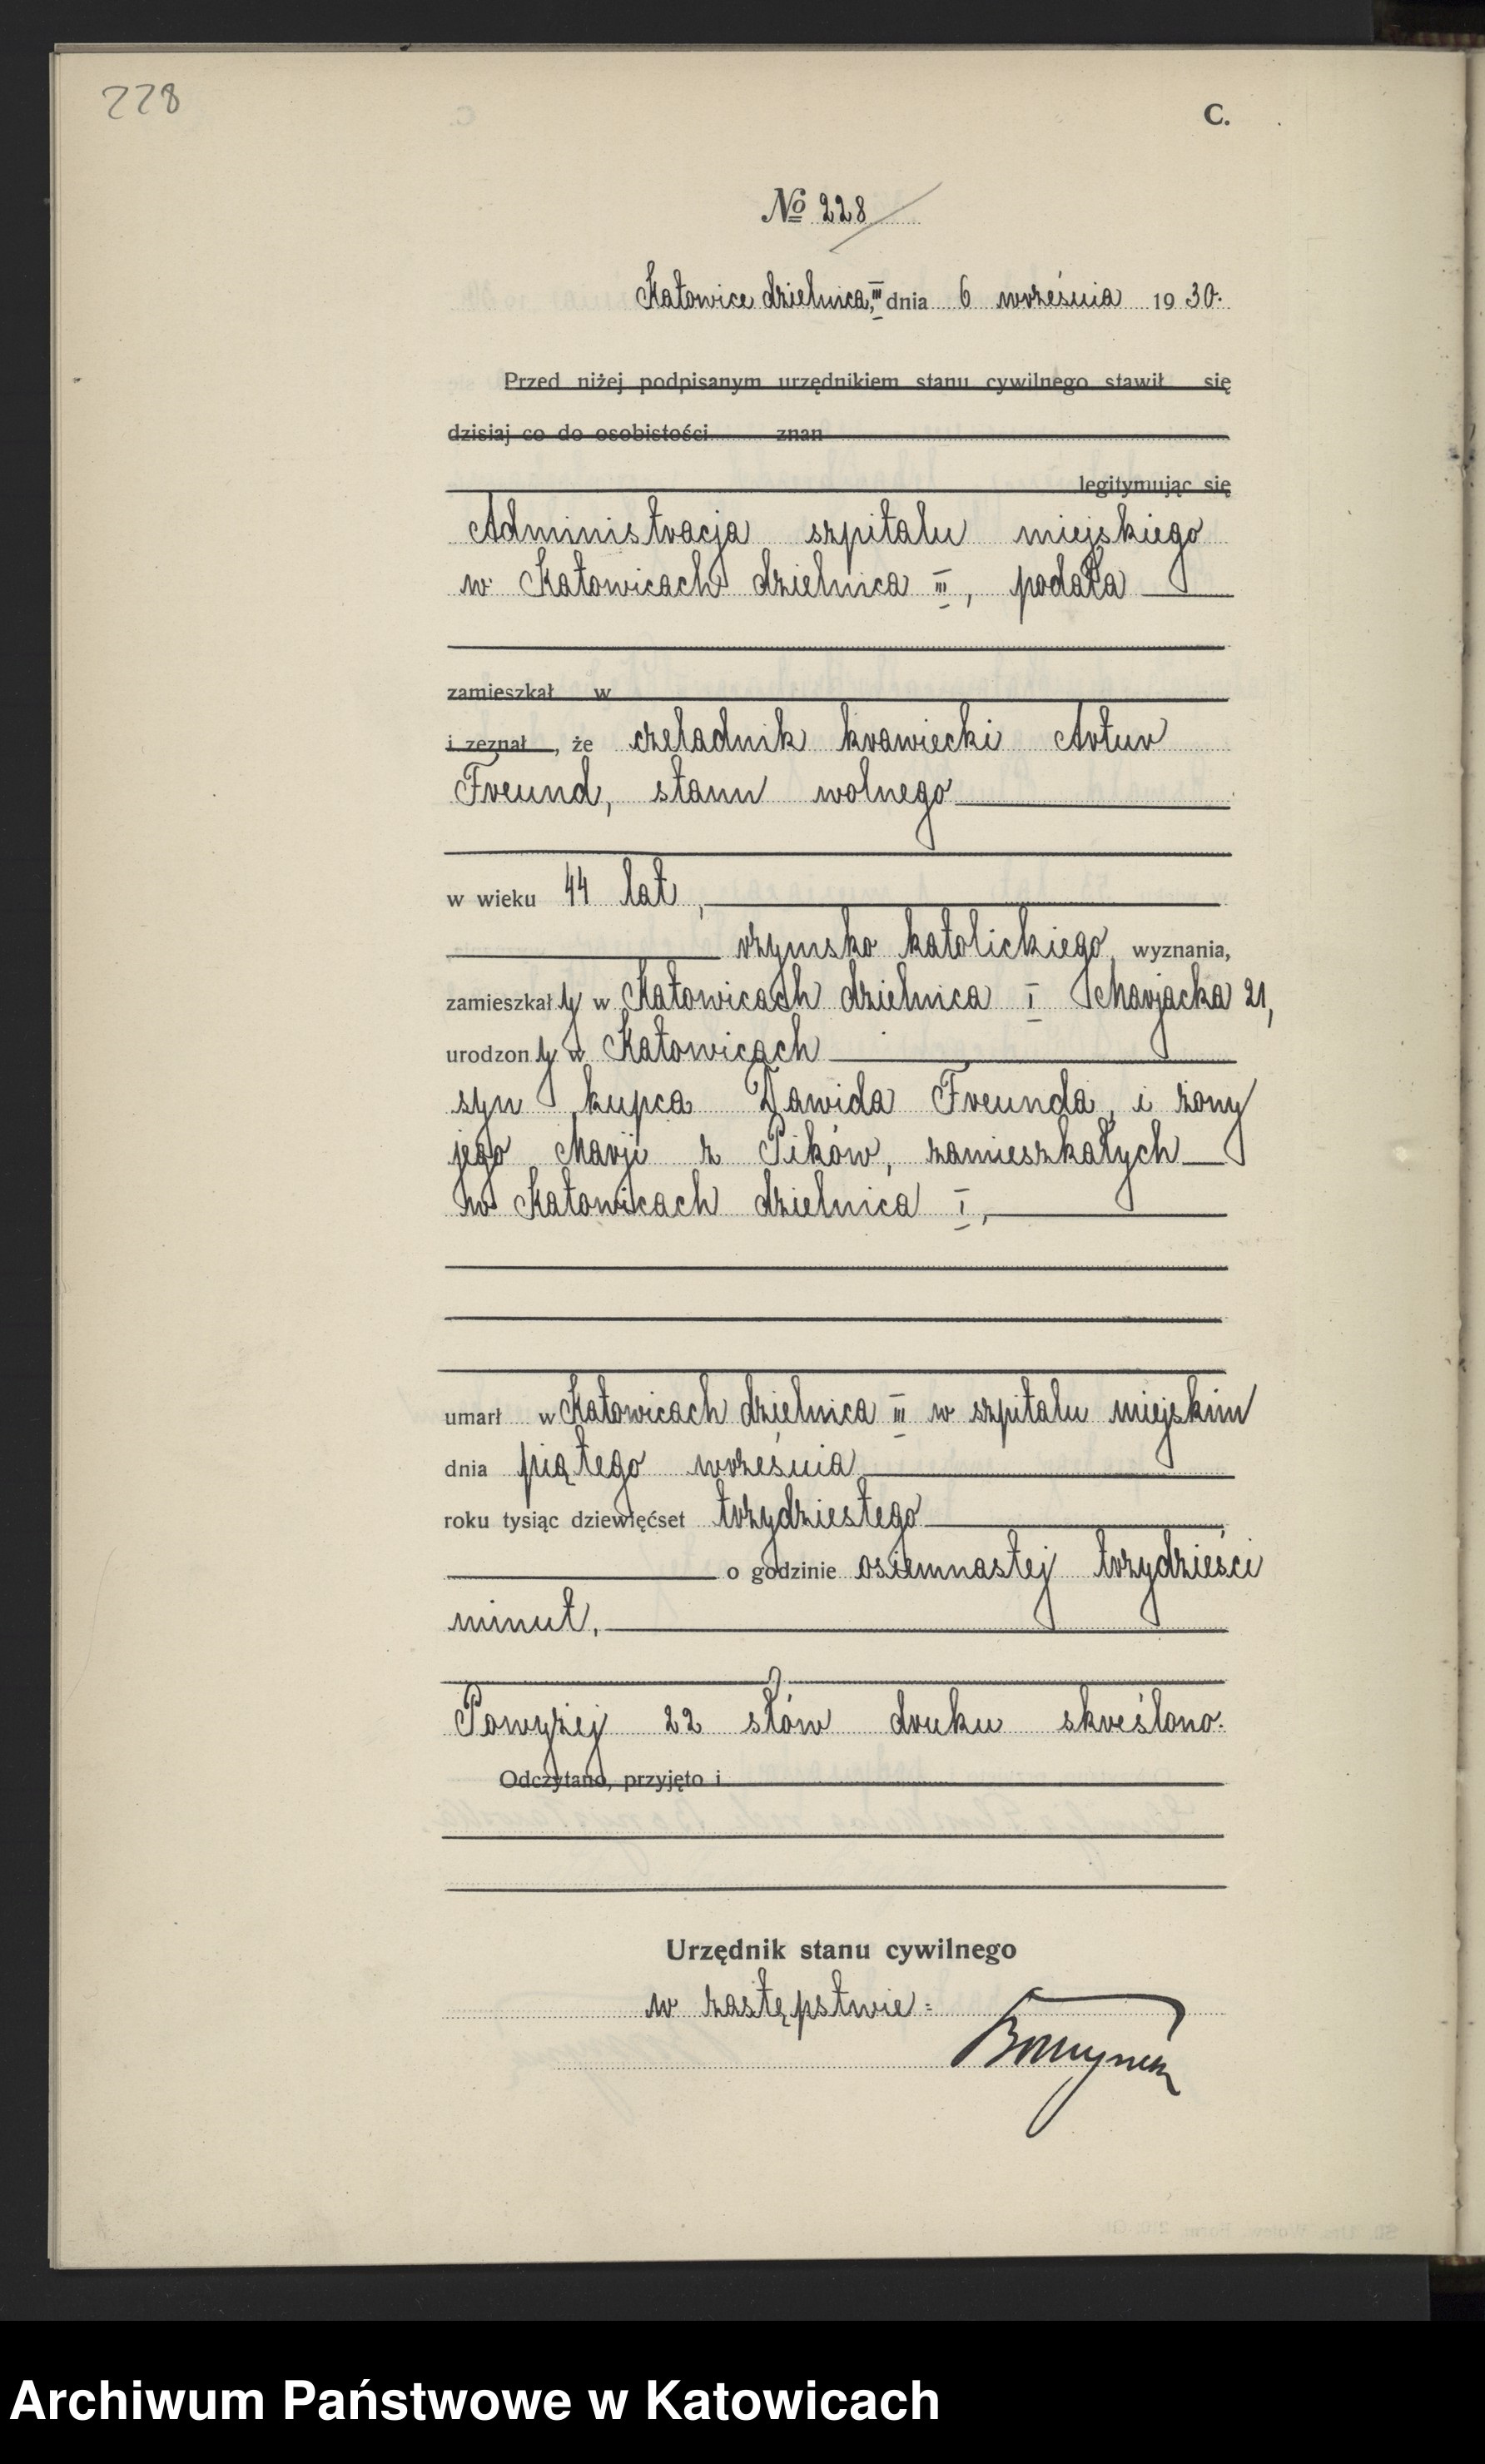 228
C.
№ 228
Katowice dzielnica III, dnia 6 września 1930.
Przed niżej podpisanym urzędnikiem stanu cywilnego stawił się
dzisiaj co do osobistości znan
legitymując się
Administracja szpitalu miejskiego
w Katowicach dzielnica III, podała
zamieszkał w
i zeznał, że czeladnik krawiecki Artur
Freund, stanu wolnego
w wieku 44 lat,
rzymsko katolickiego wyznania,
zamieszkały w Katowicach dzielnica I Marjacka 21,
urodzony w Katowicach
syn kupca Dawida Freunda, i żony
jego Marji z Pików, zamieszkałych
w Katowicach dzielnica I,
umarł w Katowicach dzielnica III w szpitalu miejskim
dnia piątego września
roku tysiąc dziewięćset trzydziestego
o godzinie osiemnastej trzydzieści
minut.
Powyżej 22 słów druku skreślono.
Odczytano, przyjęto i
Urzędnik stanu cywilnego
w zastępstwie:
Archiwum Państwowe w Katowicach